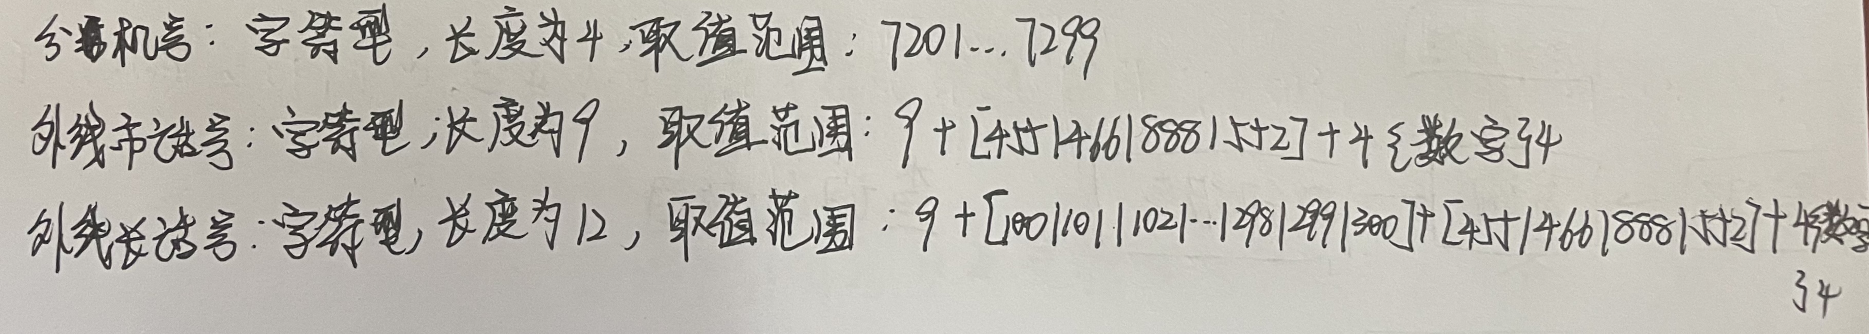 分机号：字符型，长度为4，取值范围：7201...7299
外线市话号：字符型，长度为9，取值范围：9+[455|466|888|552]+4{数字}4
外线长话号：字符型，长度为12，取值范围：9+[100|101|102|...|298|299|300]+[455|466|888|552]+4{数字
}4